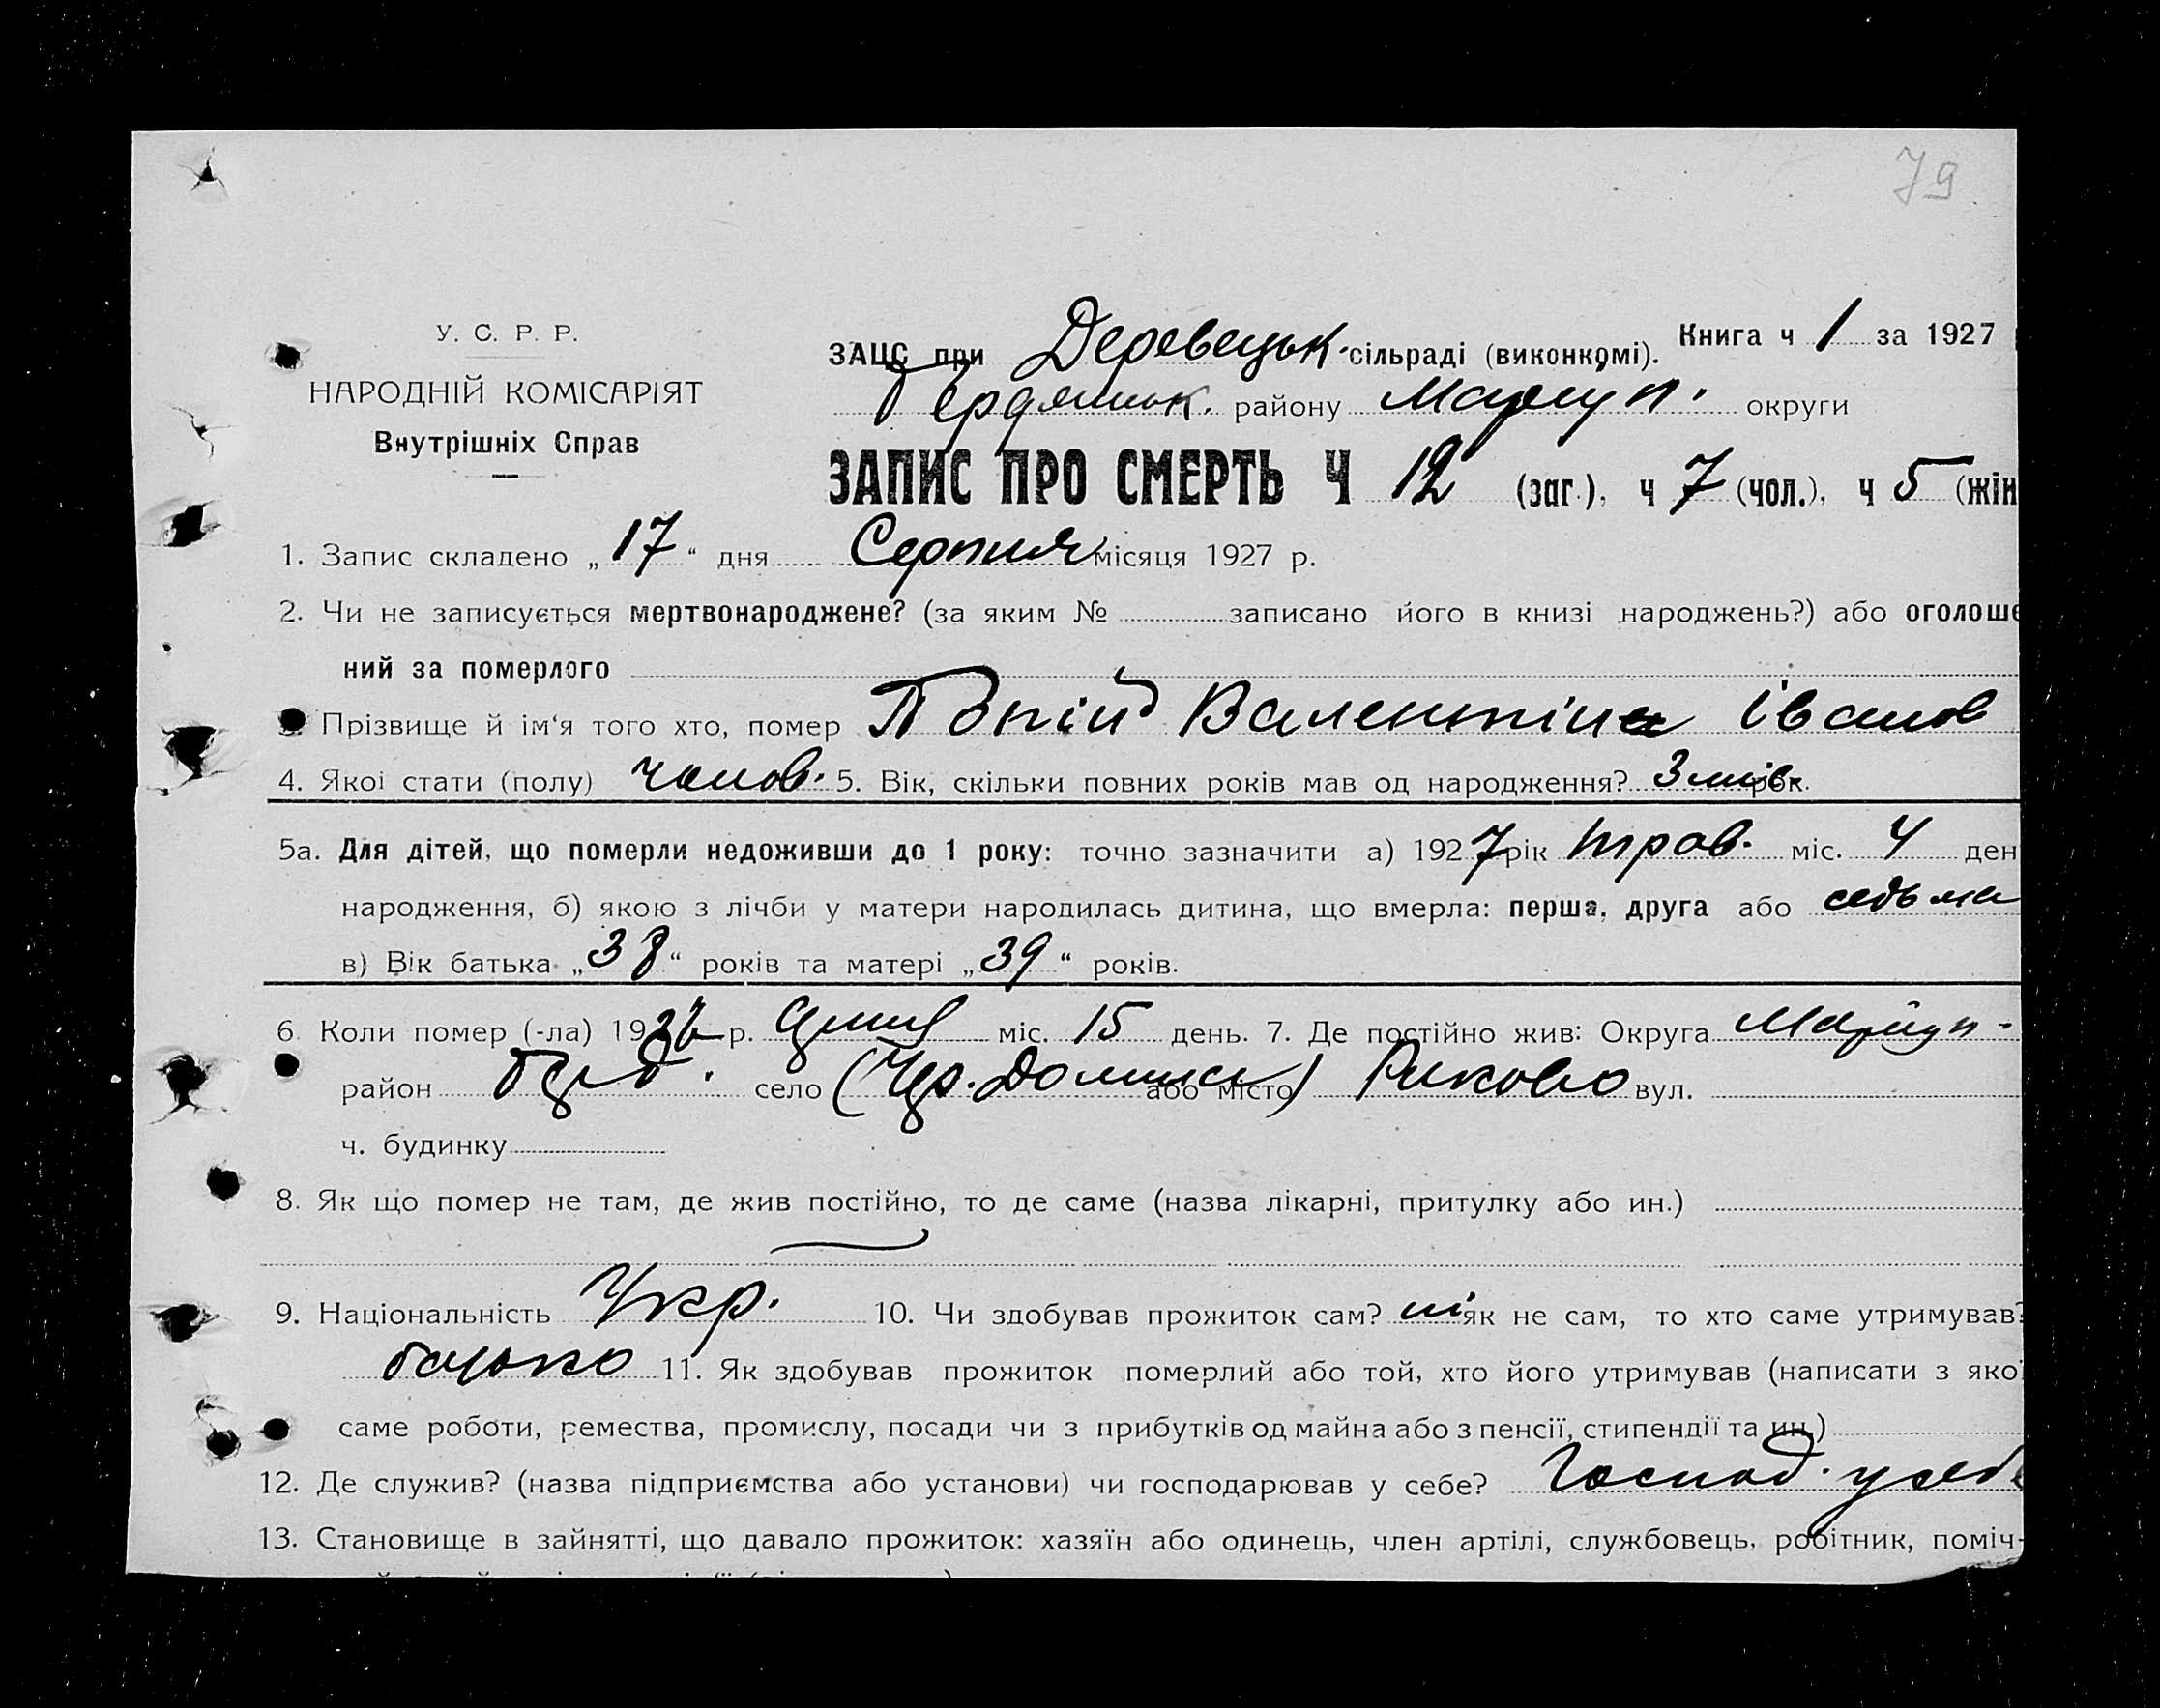 79
У. С. Р. Р.
НАРОДНІЙ КОМІСАРІЯТ
Внутрішніх Справ
ЗАЦС при Деревецьк. сільраді (виконкомі). Книга ч 1 за 1927
Бердянськ. району Маріуп. округи
ЗАПИС ПРО СМЕРТЬ Ч 12 (заг.), ч 7 (чол.), ч 5 (жін
1. Запис складено „17“ дня Серпня місяця 1927 р.
2. Чи не записується мертвонароджене? (за яким № записано його в книзі народжень?) або оголоше
ний за померлого
Прізвище й ім'я того хто, помер Валентіна Іванов
4. Якої стати (полу) чолов. 5. Вік, скільки повних років мав од народження? 3 міс. рок.
5а. Для дітей, що померли недоживши до 1 року: точно зазначити а) 1927 рік трав. міс. 4 ден
народження, б) якою з лічби у матери народилась дитина, що вмерла: перша, друга або седьма
в) Вік батька „38“ років та матері „39“ років.
6. Коли помер (-ла) 1927 р. міс. 15 день. 7. Де постійно жив: Округа Маріуп.
район Берд. село (або місто) Риково вул.
ч. будинку
8. Як що помер не там, де жив постійно, то де саме (назва лікарні, притулку або ин.)
9. Національність Укр. 10. Чи здобував прожиток сам? ні як не сам, то хто саме утримував?
батько 11. Як здобував прожиток померлий або той, хто його утримував (написати з якої
саме роботи, ремества, промислу, посади чи з прибутків од майна або з пенсії, стипендії та ин.)
12. Де служив? (назва підприємства або установи) чи господарював у себе? Господ. у себе
13. Становище в зайнятті, що давало прожиток: хазяїн або одинець, член артілі, службовець, робітник, поміч-